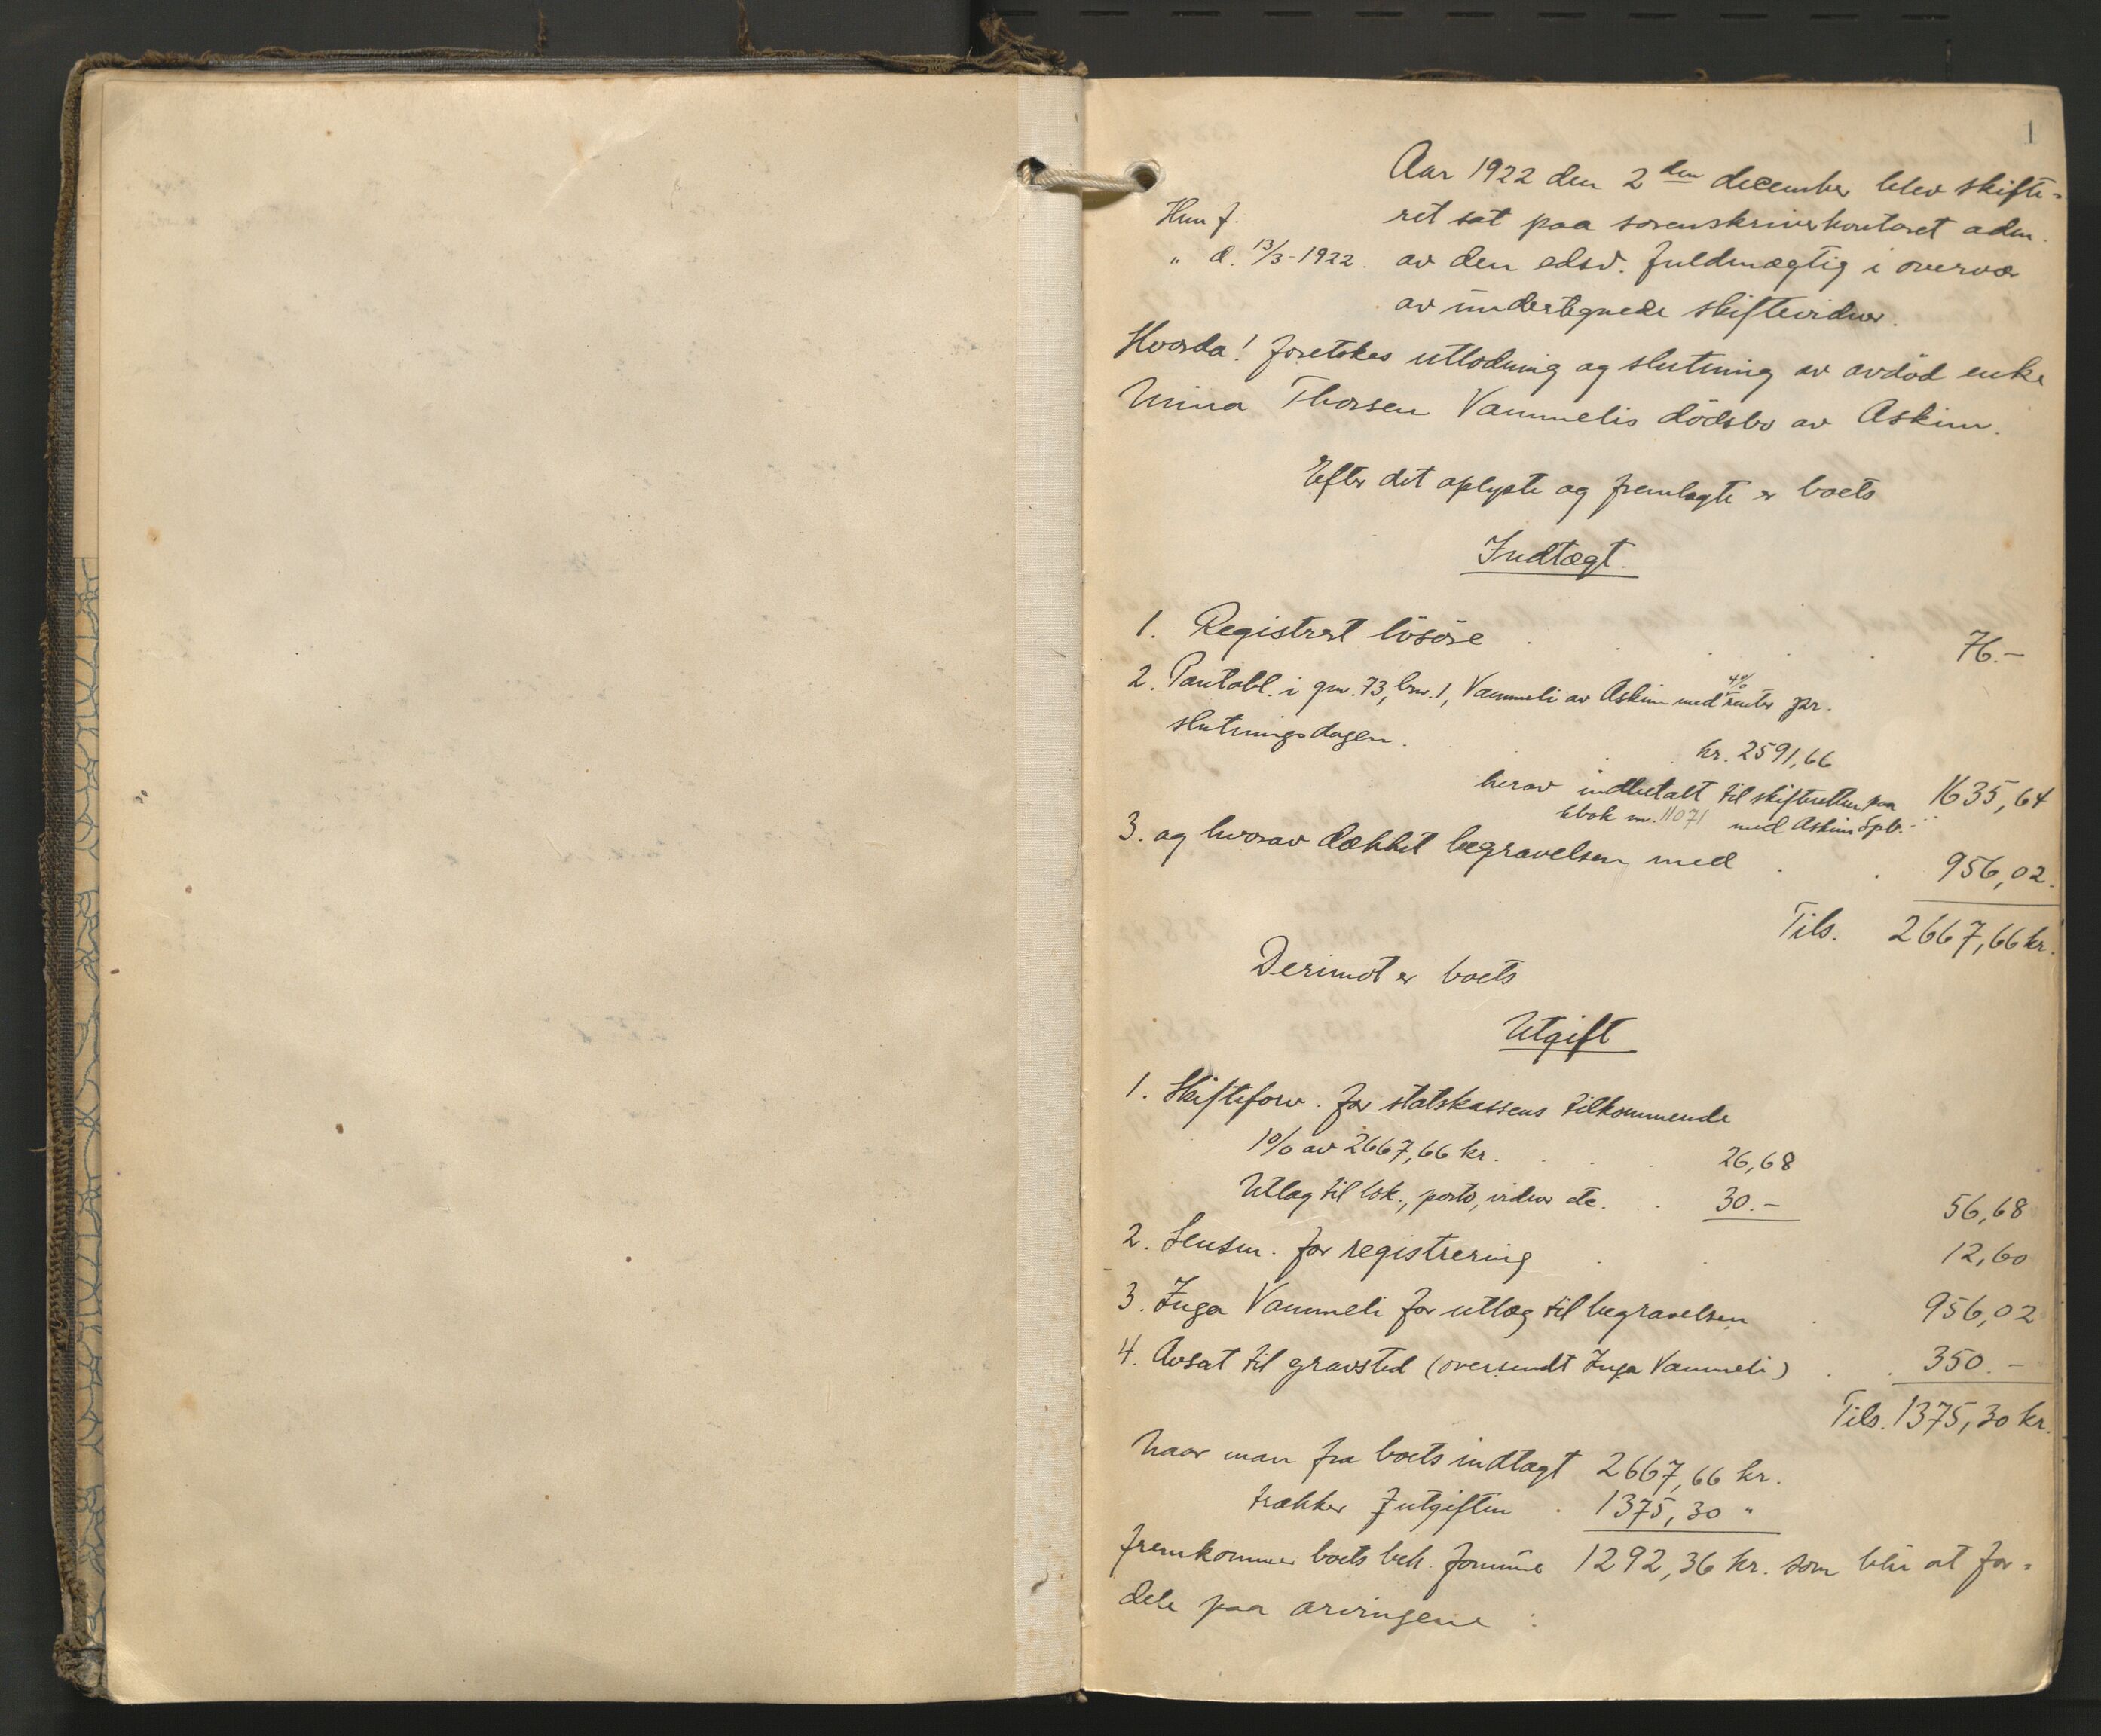 1
Aar 1922 den 2den december blev skifte-
Hun f. ret sat paa sorenskriverkontoret adm.
" d. 13/3-1922. av den edsv. fuldmægtig i overvær
av undertegnede skiftevidner.
Hvorda! foretokes utlodning og slutning av avdød enke
Mina Thorsen Vammelis dödsbo av Askim.
Efter det oplyste og fremlagte er boets
Indtægt.
1. Registrert lösöre . . . . 76.-
2. Pantobl. i gnr. 73, brn. 1, Vammeli av Askim med 4% renter pr.
slutningsdagen. . . kr. 2591,66
herav indbetalt til skifteretten paa 1635,64
kbok nr. 11071 med Askim Spb. -
3. og hvorav dækket begravelsen med . . 956,02.
Tils. 2667,66 kr.
Derimot er boets
Utgift
1. Skifteforv. for statskassens tilkommende
1% av 2667,66 kr. . . . 26,68
Utlæg til lok., porto, vidner etc. . . 30.- 56,68
2. Lensm. for registrering . . . 12,60
3. Inga Vammeli for utlæg til begravelsen . 956,02
4. Avsat til gravsted (oversendt Inga Vammeli) . . 350.-
Tils. 1375,30 kr.
Naar man fra boets indtægt 2667,66 kr.
trækker utgiften . 1375,30 "
fremkommer boets beh. formue 1292,36 kr. som blir at for-
dele paa arvingene :